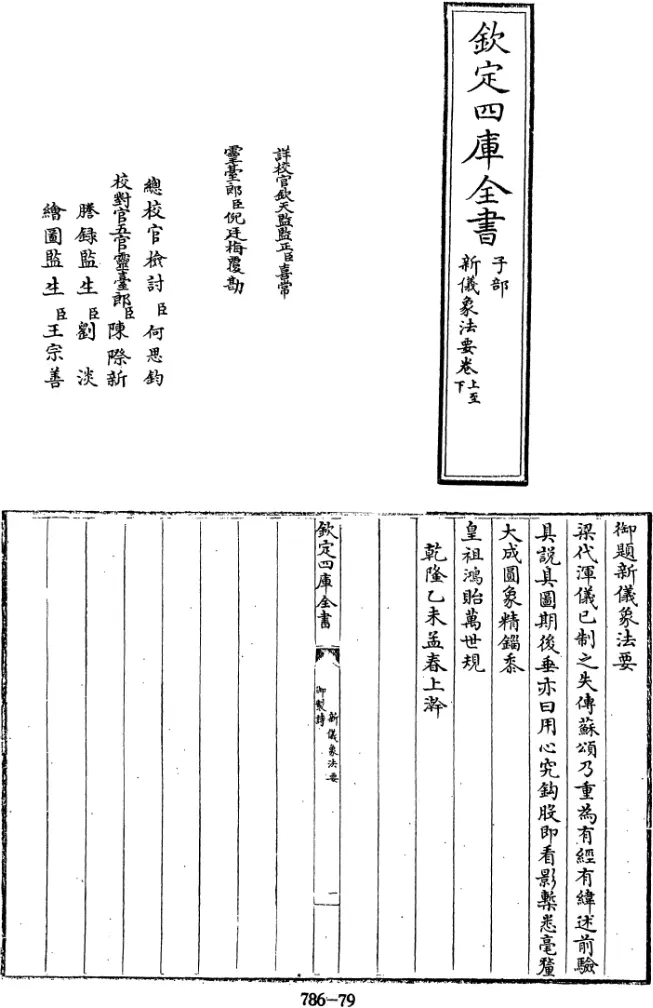 欽定四庫全書
子部
新儀象法要卷上至下
詳校官欽天監監正臣喜常
靈臺郎臣倪廷梅覆勘
總校官檢討臣何思鈞
校對官五官靈臺郎臣陳際新
謄錄監生臣劉淡
繪圖監生臣王宗善
御題新儀象法要
梁代渾儀已制之失傳蘇頌乃重為有經有緯述前驗
具說具圖期後垂亦曰用心究鈎股即看影槷悉毫釐
大成圓象精錙黍
皇祖鴻貽萬世規
乾隆乙未孟春上澣
欽定四庫全書
新儀象法要
御製詩
一
786-79